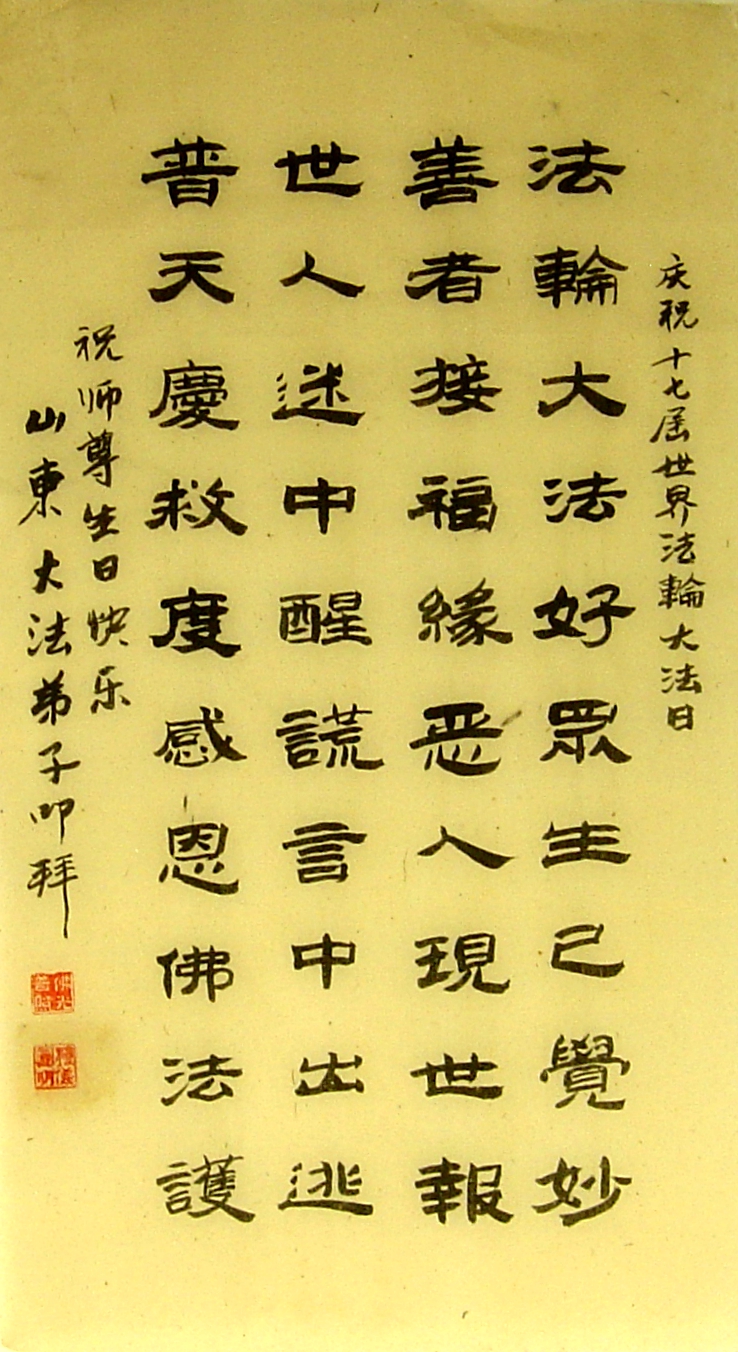 庆祝十七届世界法輪大法日
法輪大法好眾生已覺妙
善者接福緣恶人現世報
世人迷中醒謊言中出逃
普天慶救度感恩佛法護
祝师尊生日快乐
山東大法弟子叩拜